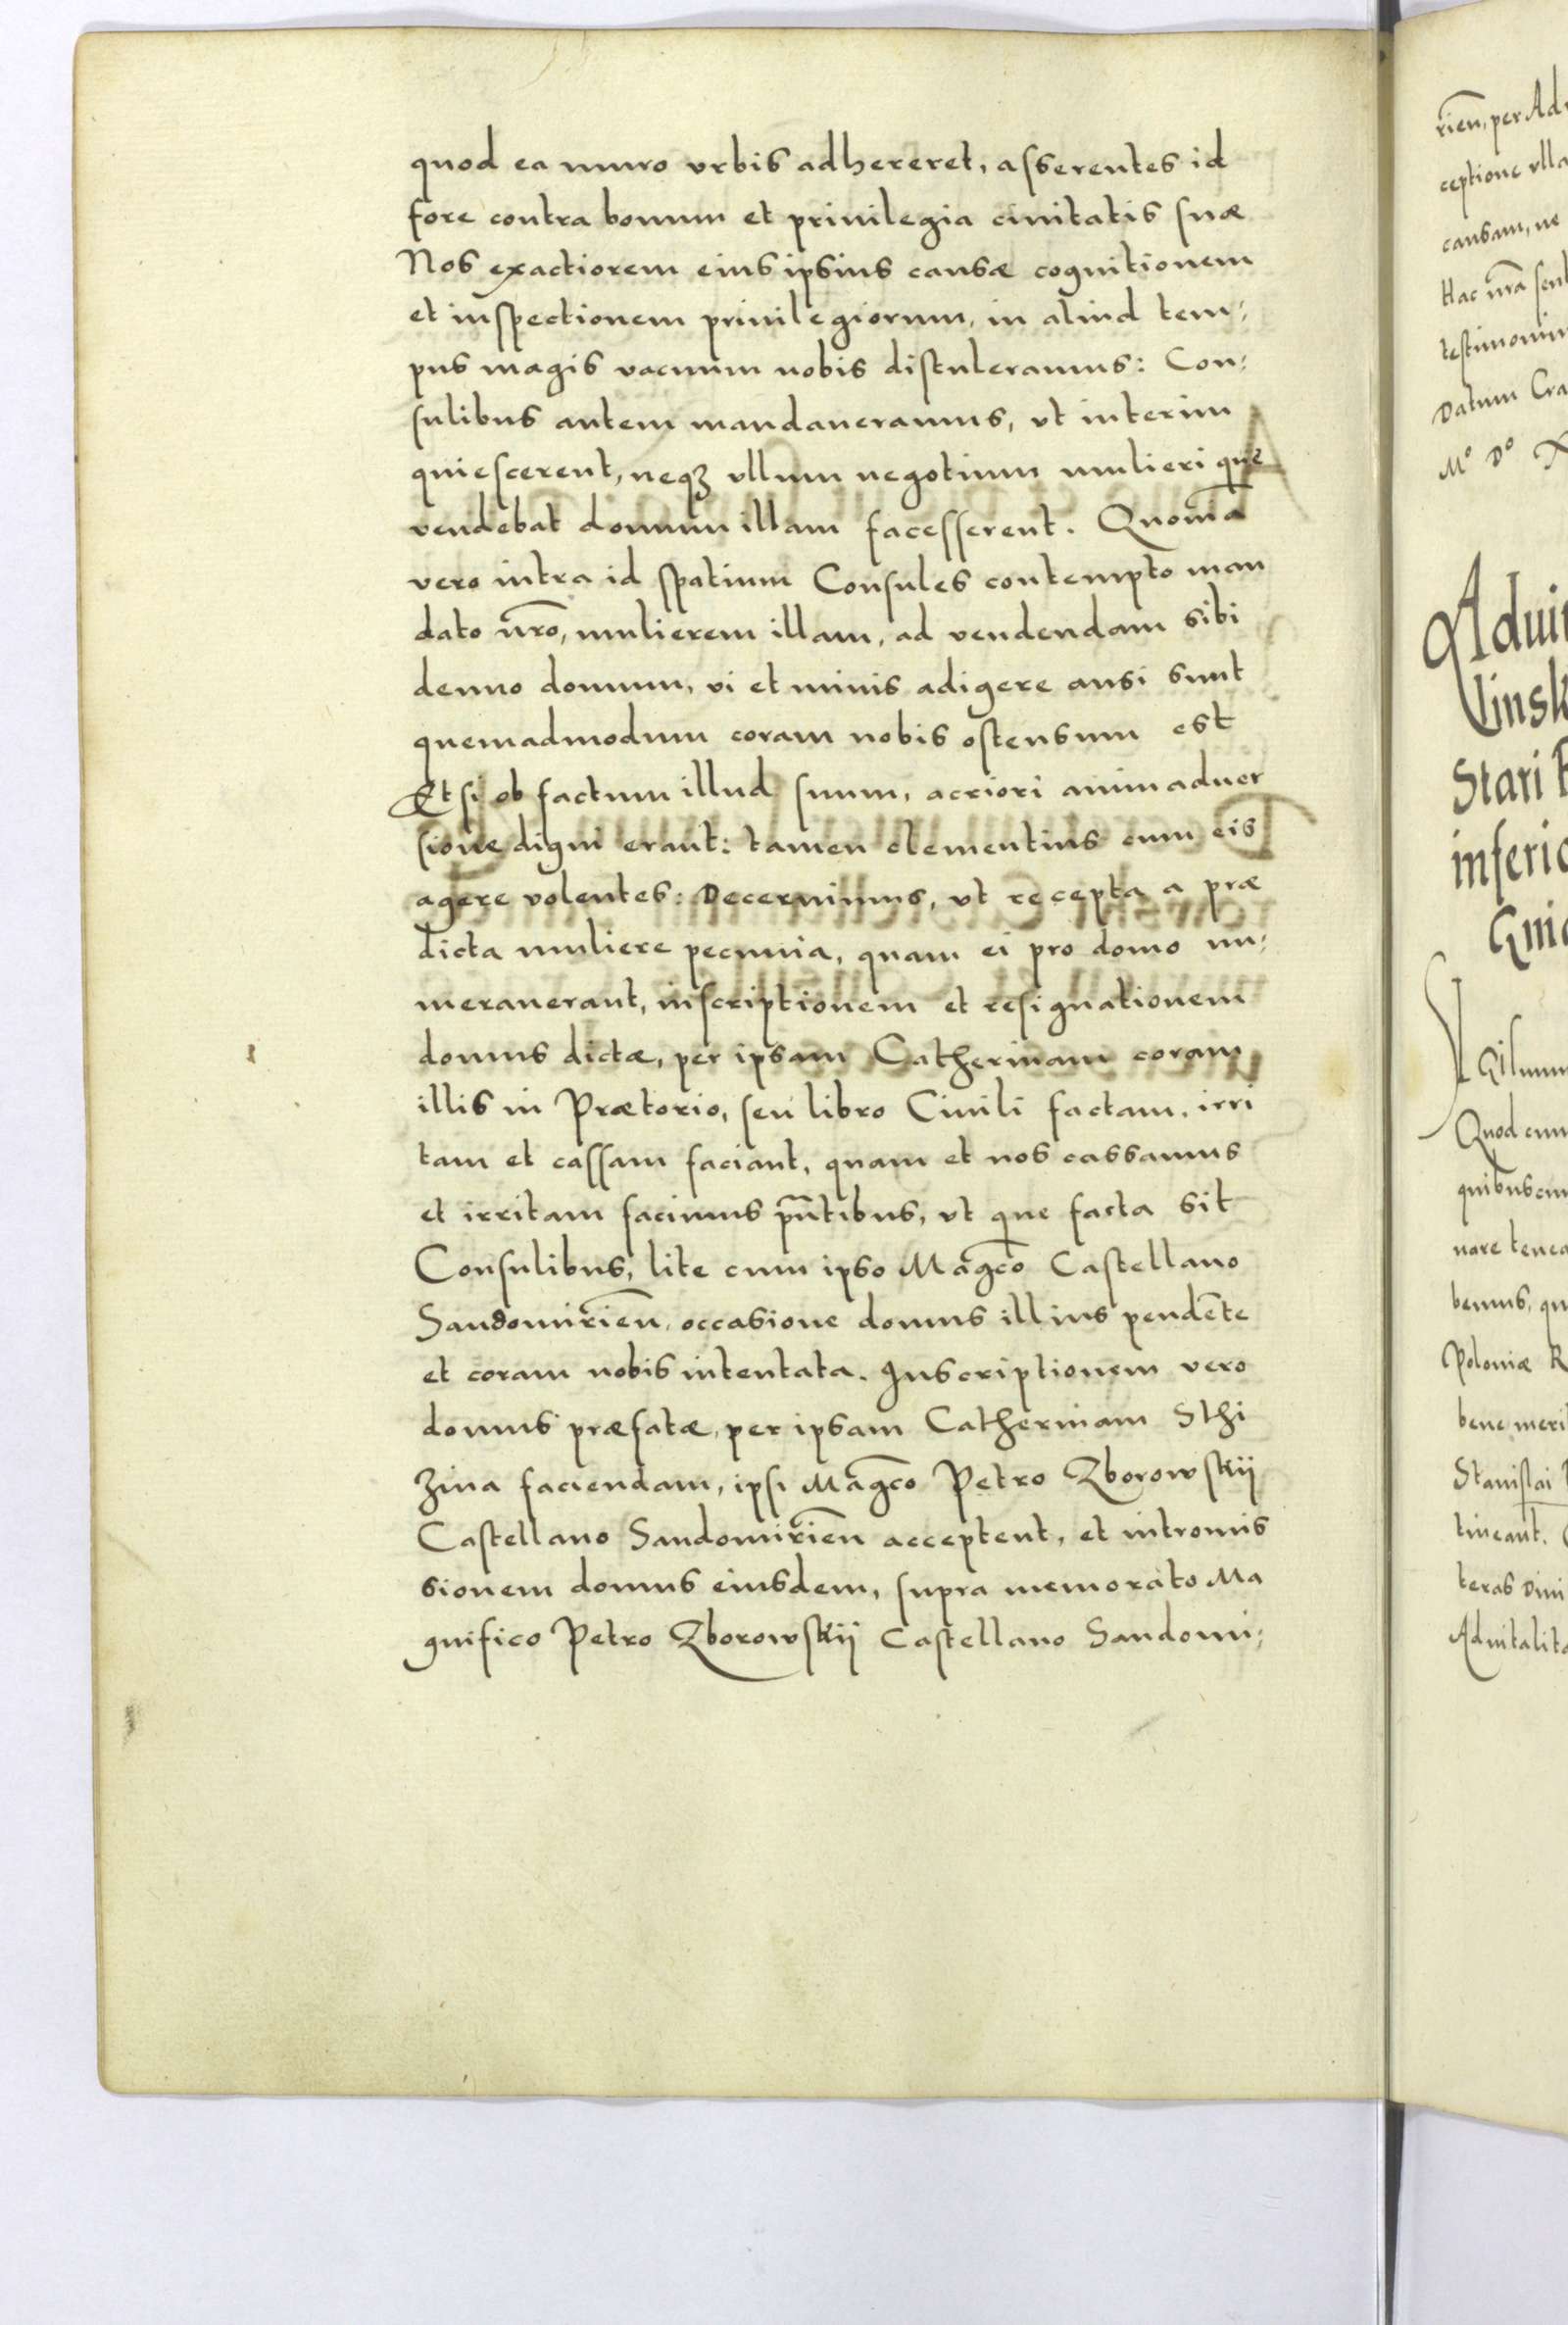 quod ea muro vrbis adhereret, asserentes id
fore contra bonum et priuilegia ciuitatis suæ
Nos exactiorem eius ipsius causæ cognitionem
et inspectionem priuilegiorum, in aliud tem:
pus magis vacuum nobis distuleramus: Con:
sulibus autem mandaueramus, vt interim
quiescerent, neqȝ vllum negotium mulieri que
vendebat domum illam facesserent. Quoniā
vero intra id spatium Consules contempto man
dato nr̄o, mulierem illam, ad vendendam sibi
denuo domum, vi et minis adigere ausi sunt
quemadmodum coram nobis ostensum est
Et si ob factum illud suum, acriori animaduer
sione digni erant: tamen clementius cum eis
agere volentes: Decernimus, vt recepta a præ
dicta muliere pecunia, quam ei pro domo nu:
merauerant, inscriptionem et resignationem
domus dictæ, per ipsam Catherinam coram
illis in Prætorio, seu libro Ciuili factam, irri
tam et cassam faciant, quam et nos cassamus
et irritam facimus pn̄tibus, vt que facta sit
Consulibus, lite cum ipso Mag̃co Castellano
Sandomirien̄, occasione domus illius pendēte
et coram nobis intentata. Inscriptionem vero
domus præfatæ, per ipsam Catherinam Sthi
zina faciendam, ipsi Mag̃co Petro Zborowskij
Castellano Sandomirien̄ acceptent, et intromis
sionem domus eiusdem, supra memorato Ma
gnifico Petro Zborowskij Castellano Sandomi:
rien̄, per Ad
ceptione vlla
causam, ne
Hac nr̄a sent
testimoniu
Datum Cra
Mº Dº X
Adui
Linsk
Stari
inferio
Gni
Quod cum
quibuscum
nare tenea
bemus, qu
Poloniæ R
bene meri
Stanislai
tineant.
teras
Aduitalita